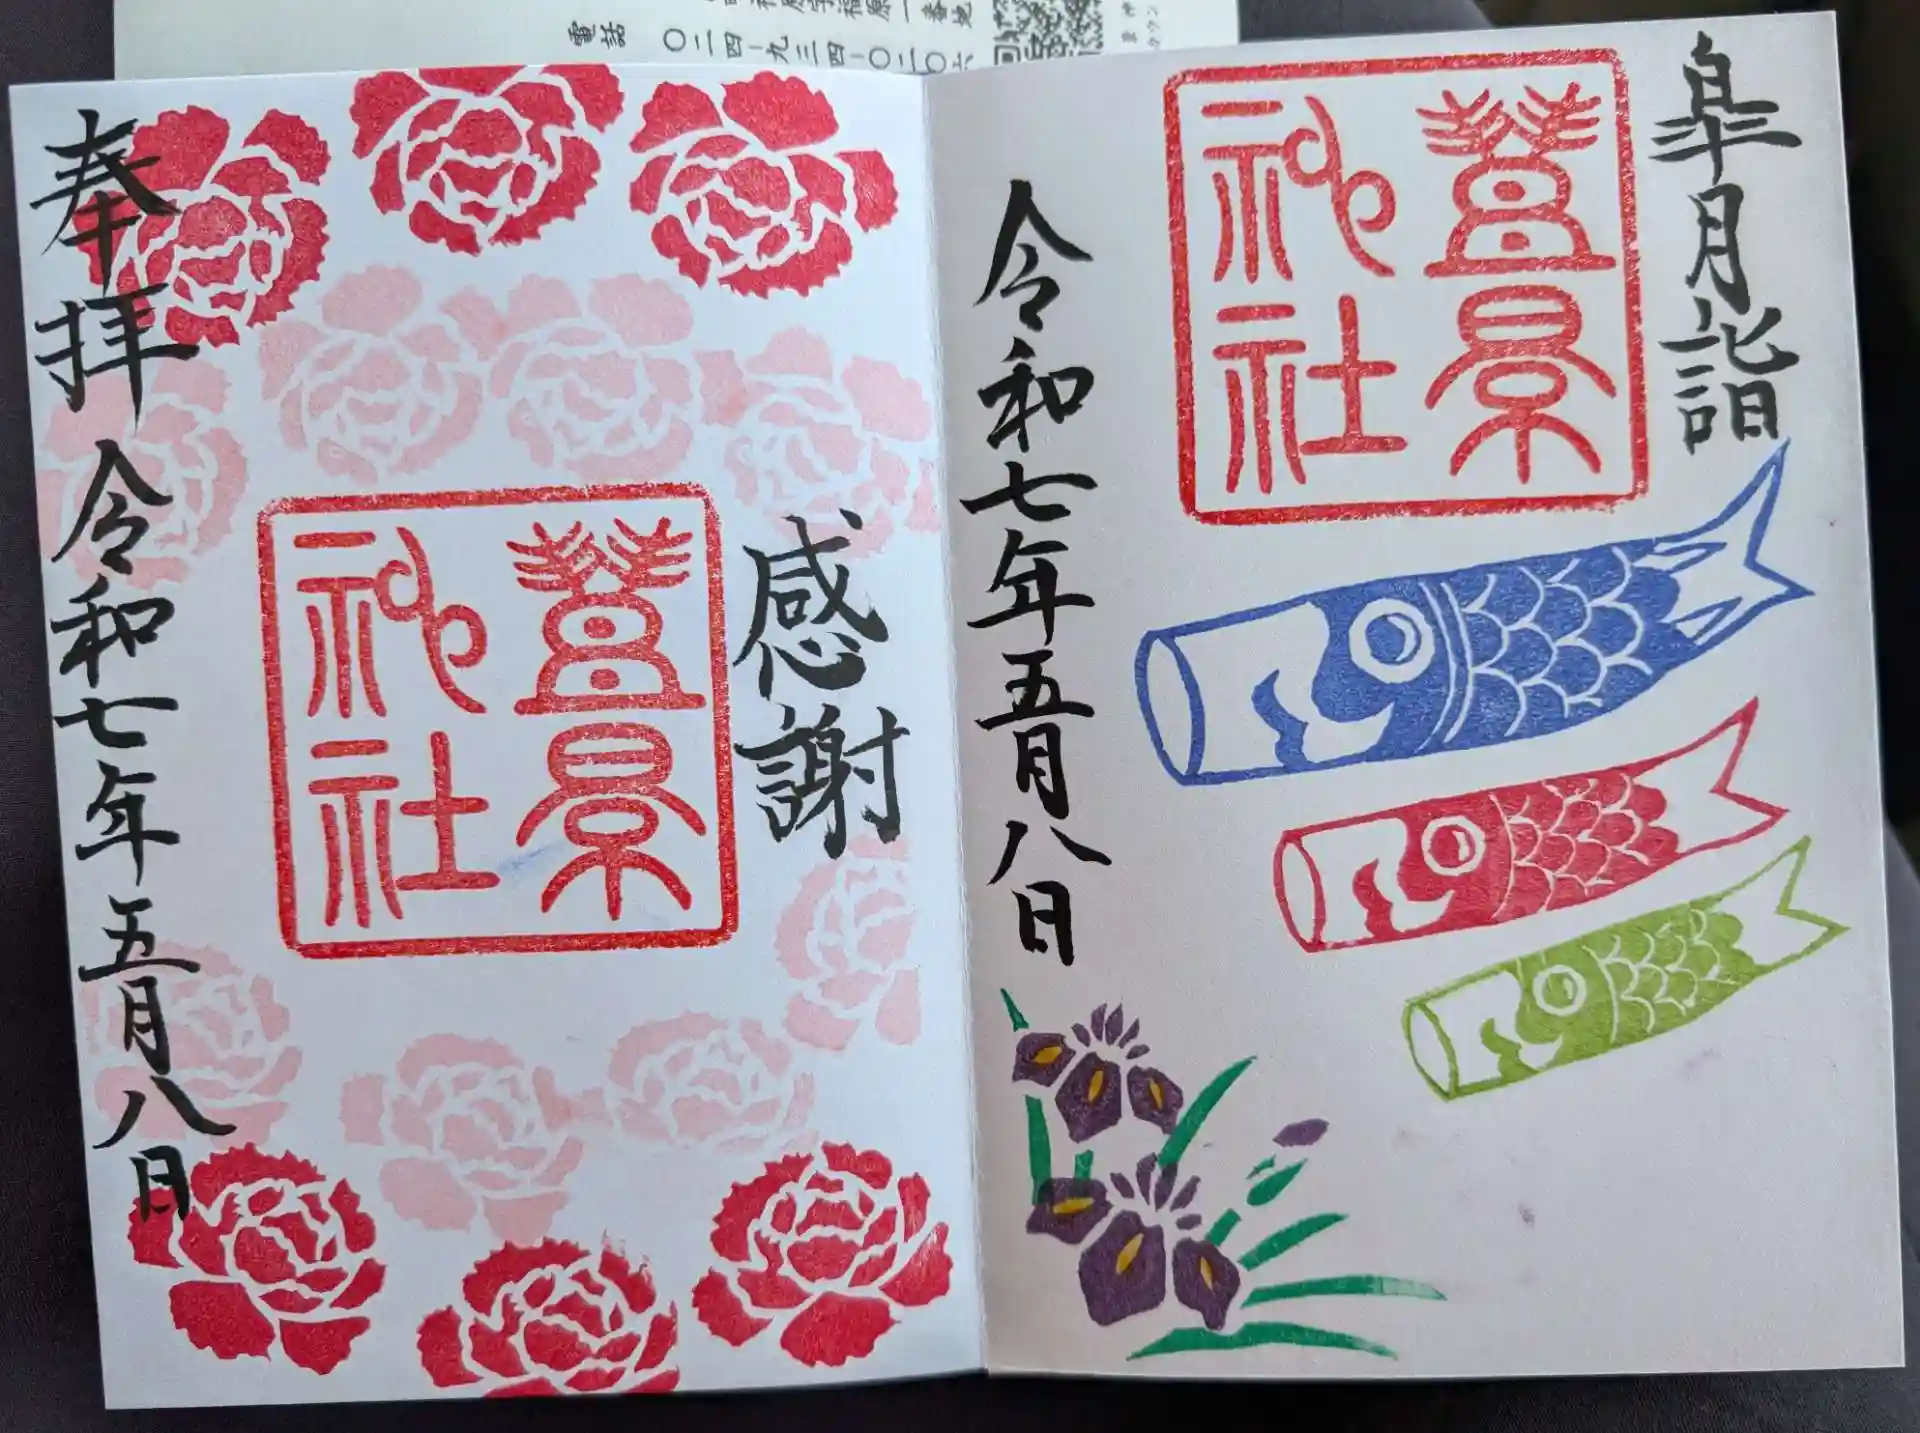 電話
〇二四-九三四-〇
皐月詣
豊景
神社
令和七年五月八日
感謝
豊景
神社
奉拝 令和七年五月八日